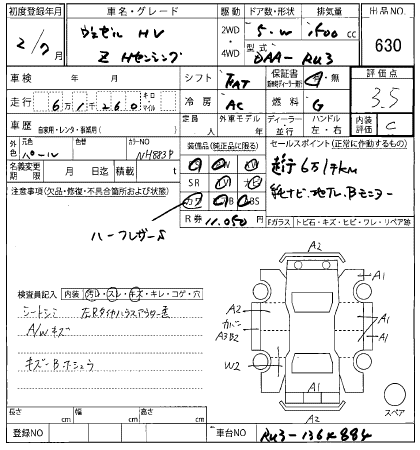 初度登録年月 車名・グレード 駆動 ドア数・形状 排気量 出品NO.
2/7 ヴェゼル HV 2WD 5.W 1500 cc 630
Z Hセンシング 4WD 型式 DAA-RU3
車検 年 月 シフト FAT 保証書 有・無 評価点
走行 6万1260 キロ マイル 冷房 AC 燃料 G 3.5
車歴 自家用・レンタ・事業用( ) 定員 人 外車モデル 年 ディーラー 並行 ハンドル 左・右 内装評価 C
外色 元色 パール 色替 カラーNO NH883P 装備品(純正品に限る) セールスポイント(正常に作動するもの)
名義変更期限 月 日迄 積載 t SR ナビ
走行6万1千km
注意事項(欠品・修復・不具合箇所および状態) カワ ABS
純ナビ.地デジ.Bモニター
R券 11,050
Fガラス トビ石・キズ・ヒビ・ワレ・リペア跡
ハーフレザー
A2
A1
検査員記入 内装 汚れ・スレ・キズ・キレ・コゲ・穴
A2
カバー
A3B2
A1
A1
A/Wキズ
W2
キズ-B.ホシュウ
A1
A2
スペア
長さ cm 幅 cm 高さ cm
登録NO 車台NO RU3-136K884